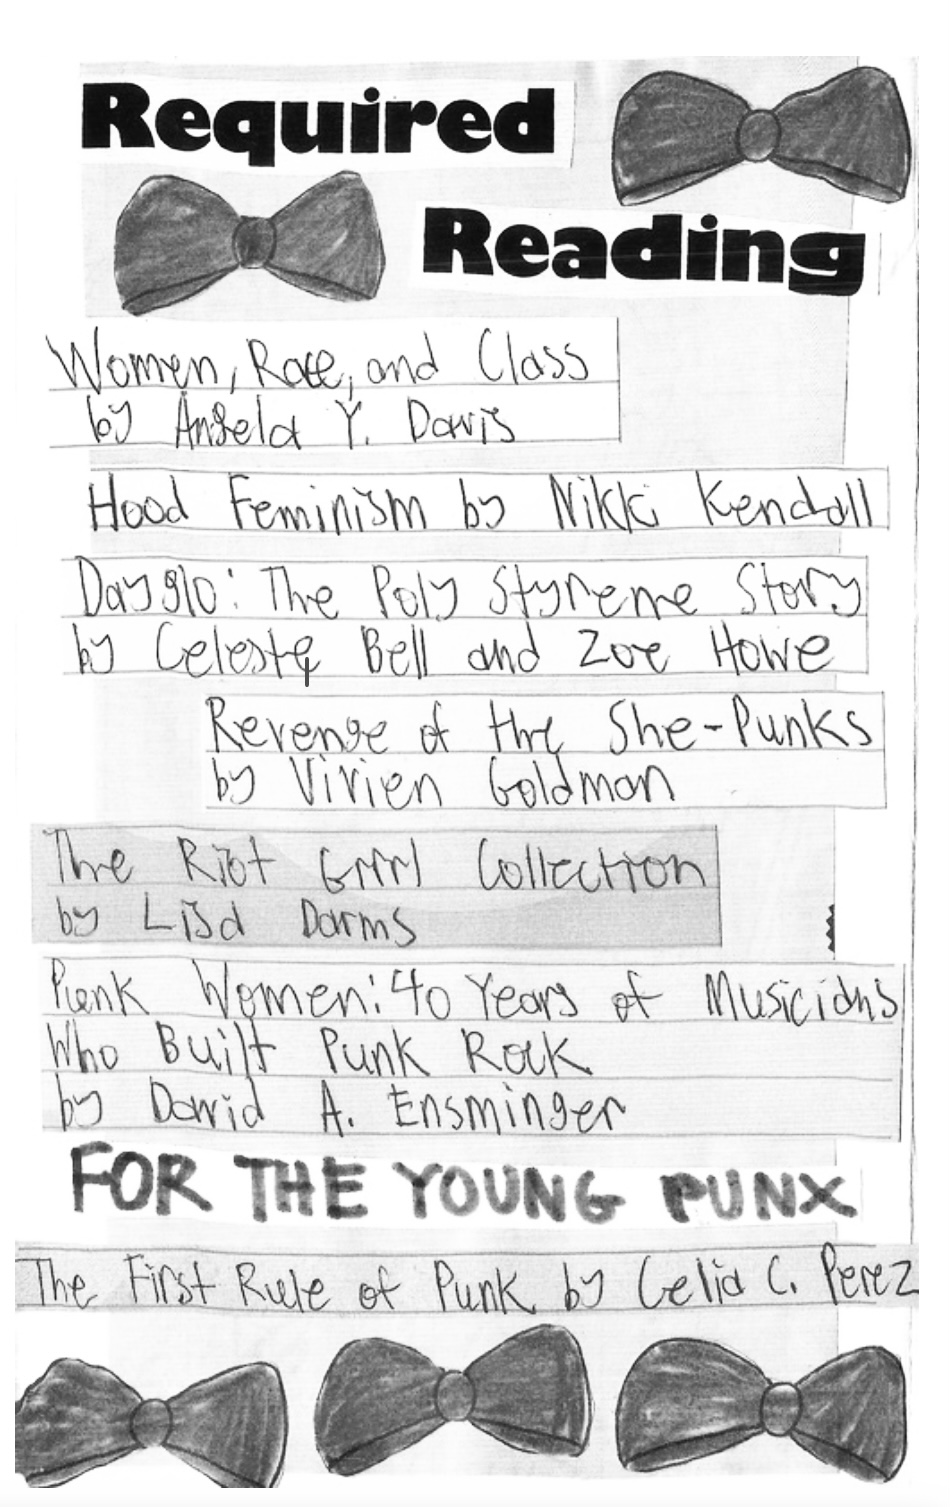 Required
Reading
Women, Race, and Class
by Angela Y. Davis
Hood Feminism by Nikki Kendall
Dayglo: The Poly Styrene Story
by Celeste Bell and Zoe Howe
Revenge of the She-Punks
by Vivien Goldman
The Riot Grrrl Collection
by Lisa Darms
Punk Women: 40 Years of Musicians
Who Built Punk Rock
by David A. Ensminger
FOR THE YOUNG PUNX
The First Rule of Punk by Celia C. Perez